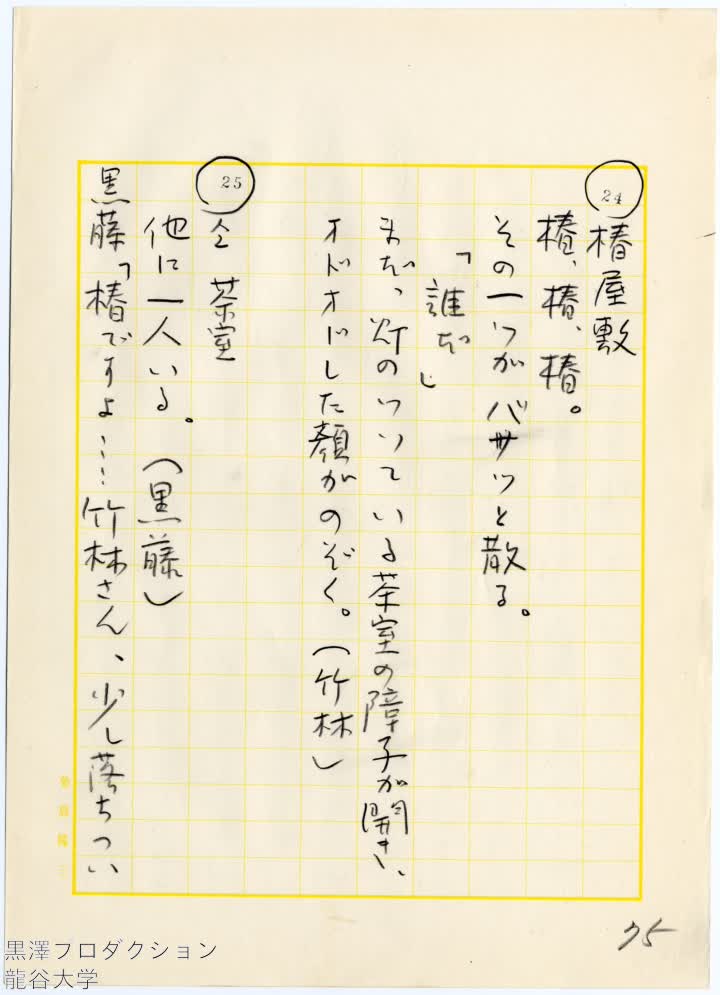 24
椿屋敷
椿、椿、椿。
その一つがバサッと散る。
「誰だ」
まだ、灯のついている茶室の障子が開き、
オドオドした顔がのぞく。（竹林）
25
仝 茶室
他に一人いる。（黒藤）
黒藤「椿ですよ……竹林さん、少し落ちつい
75
黒澤プロダクション
龍谷大学